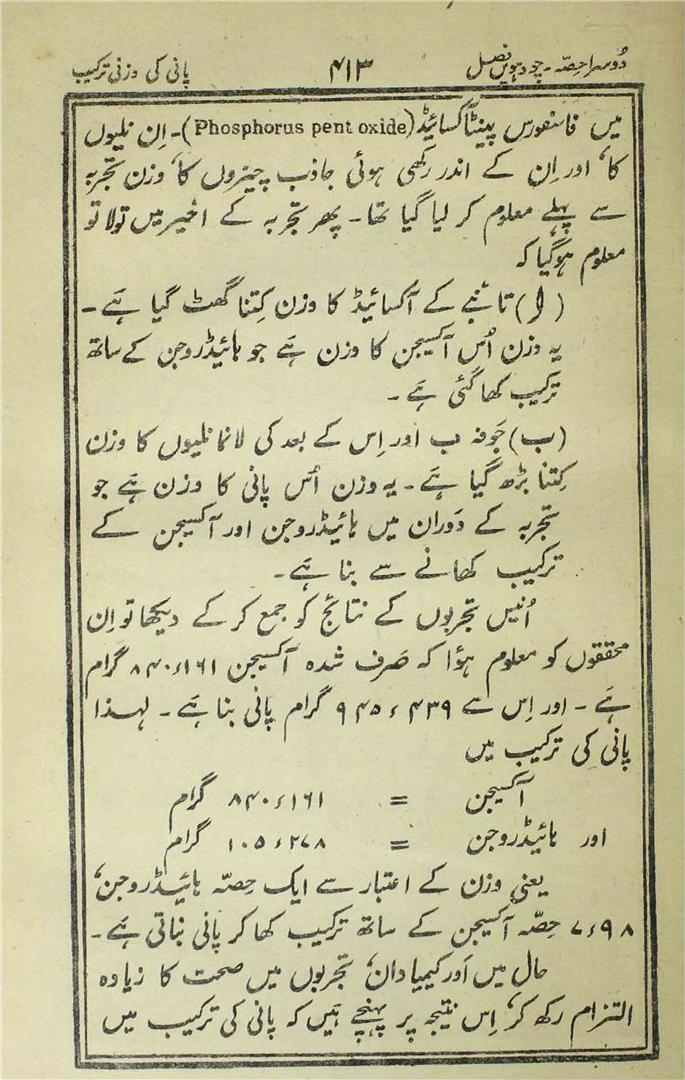 دُوسرا حِصّہ۔ چودہویں فصل ۴۱۳ پانی کی وزنی ترکیب
میں فاسفورس پینٹآکسائیڈ (Phosphorus pent oxide)۔ اِن نلیوں
کا، اور اِن کے اندر رکھی ہوئی جاذب چیزوں کا، وزن تجربہ
سے پہلے معلوم کر لیا گیا تھا۔ پھر تجربہ کے اخیر میں تولا تو
معلوم ہوگیا کہ
(ا) تانبے کے آکسائیڈ کا وزن کِتنا گھٹ گیا ہَے۔
یہ وزن اُس آکسیجن کا وزن ہَے جو ہائیڈروجن کے ساتھ
ترکیب کھا گئی ہَے۔
(ب) جَوفہ ب اور اِس کے بعد کی لانما نلیوں کا وزن
کِتنا بڑھ گیا ہَے۔ یہ وزن اُس پانی کا وزن ہَے جو
تجربہ کے دَوران میں ہائیڈروجن اور آکسیجن کے
ترکیب کھانے سے بنا ہَے۔
اُنیس تجربوں کے نتائج کو جمع کر کے دیکھا تو اِن
محققوں کو معلوم ہؤا کہ صَرف شدہ آکسیجن ۸۴۰٫۱۶۱ گرام
ہَے۔ اور اِس سے ۹۴۵٫۴۳۹ گرام پانی بنا ہَے۔ لہذا
پانی کی ترکیب میں
آکسیجن = ۸۴۰٫۱۶۱ گرام
اور ہائیڈروجن = ۱۰۵٫۲۷۸ گرام
یعنی وزن کے اعتبار سے ایک حِصّہ ہائیڈروجن،
۷٫۹۸ حِصّہ آکسیجن کے ساتھ ترکیب کھا کر پانی بناتی ہَے۔
حال میں اَور کیمیادان، تجربوں میں صحت کا زیادہ
التزام رکھ کر، اِس نتیجہ پر پہنچے ہَیں کہ پانی کی ترکیب میں